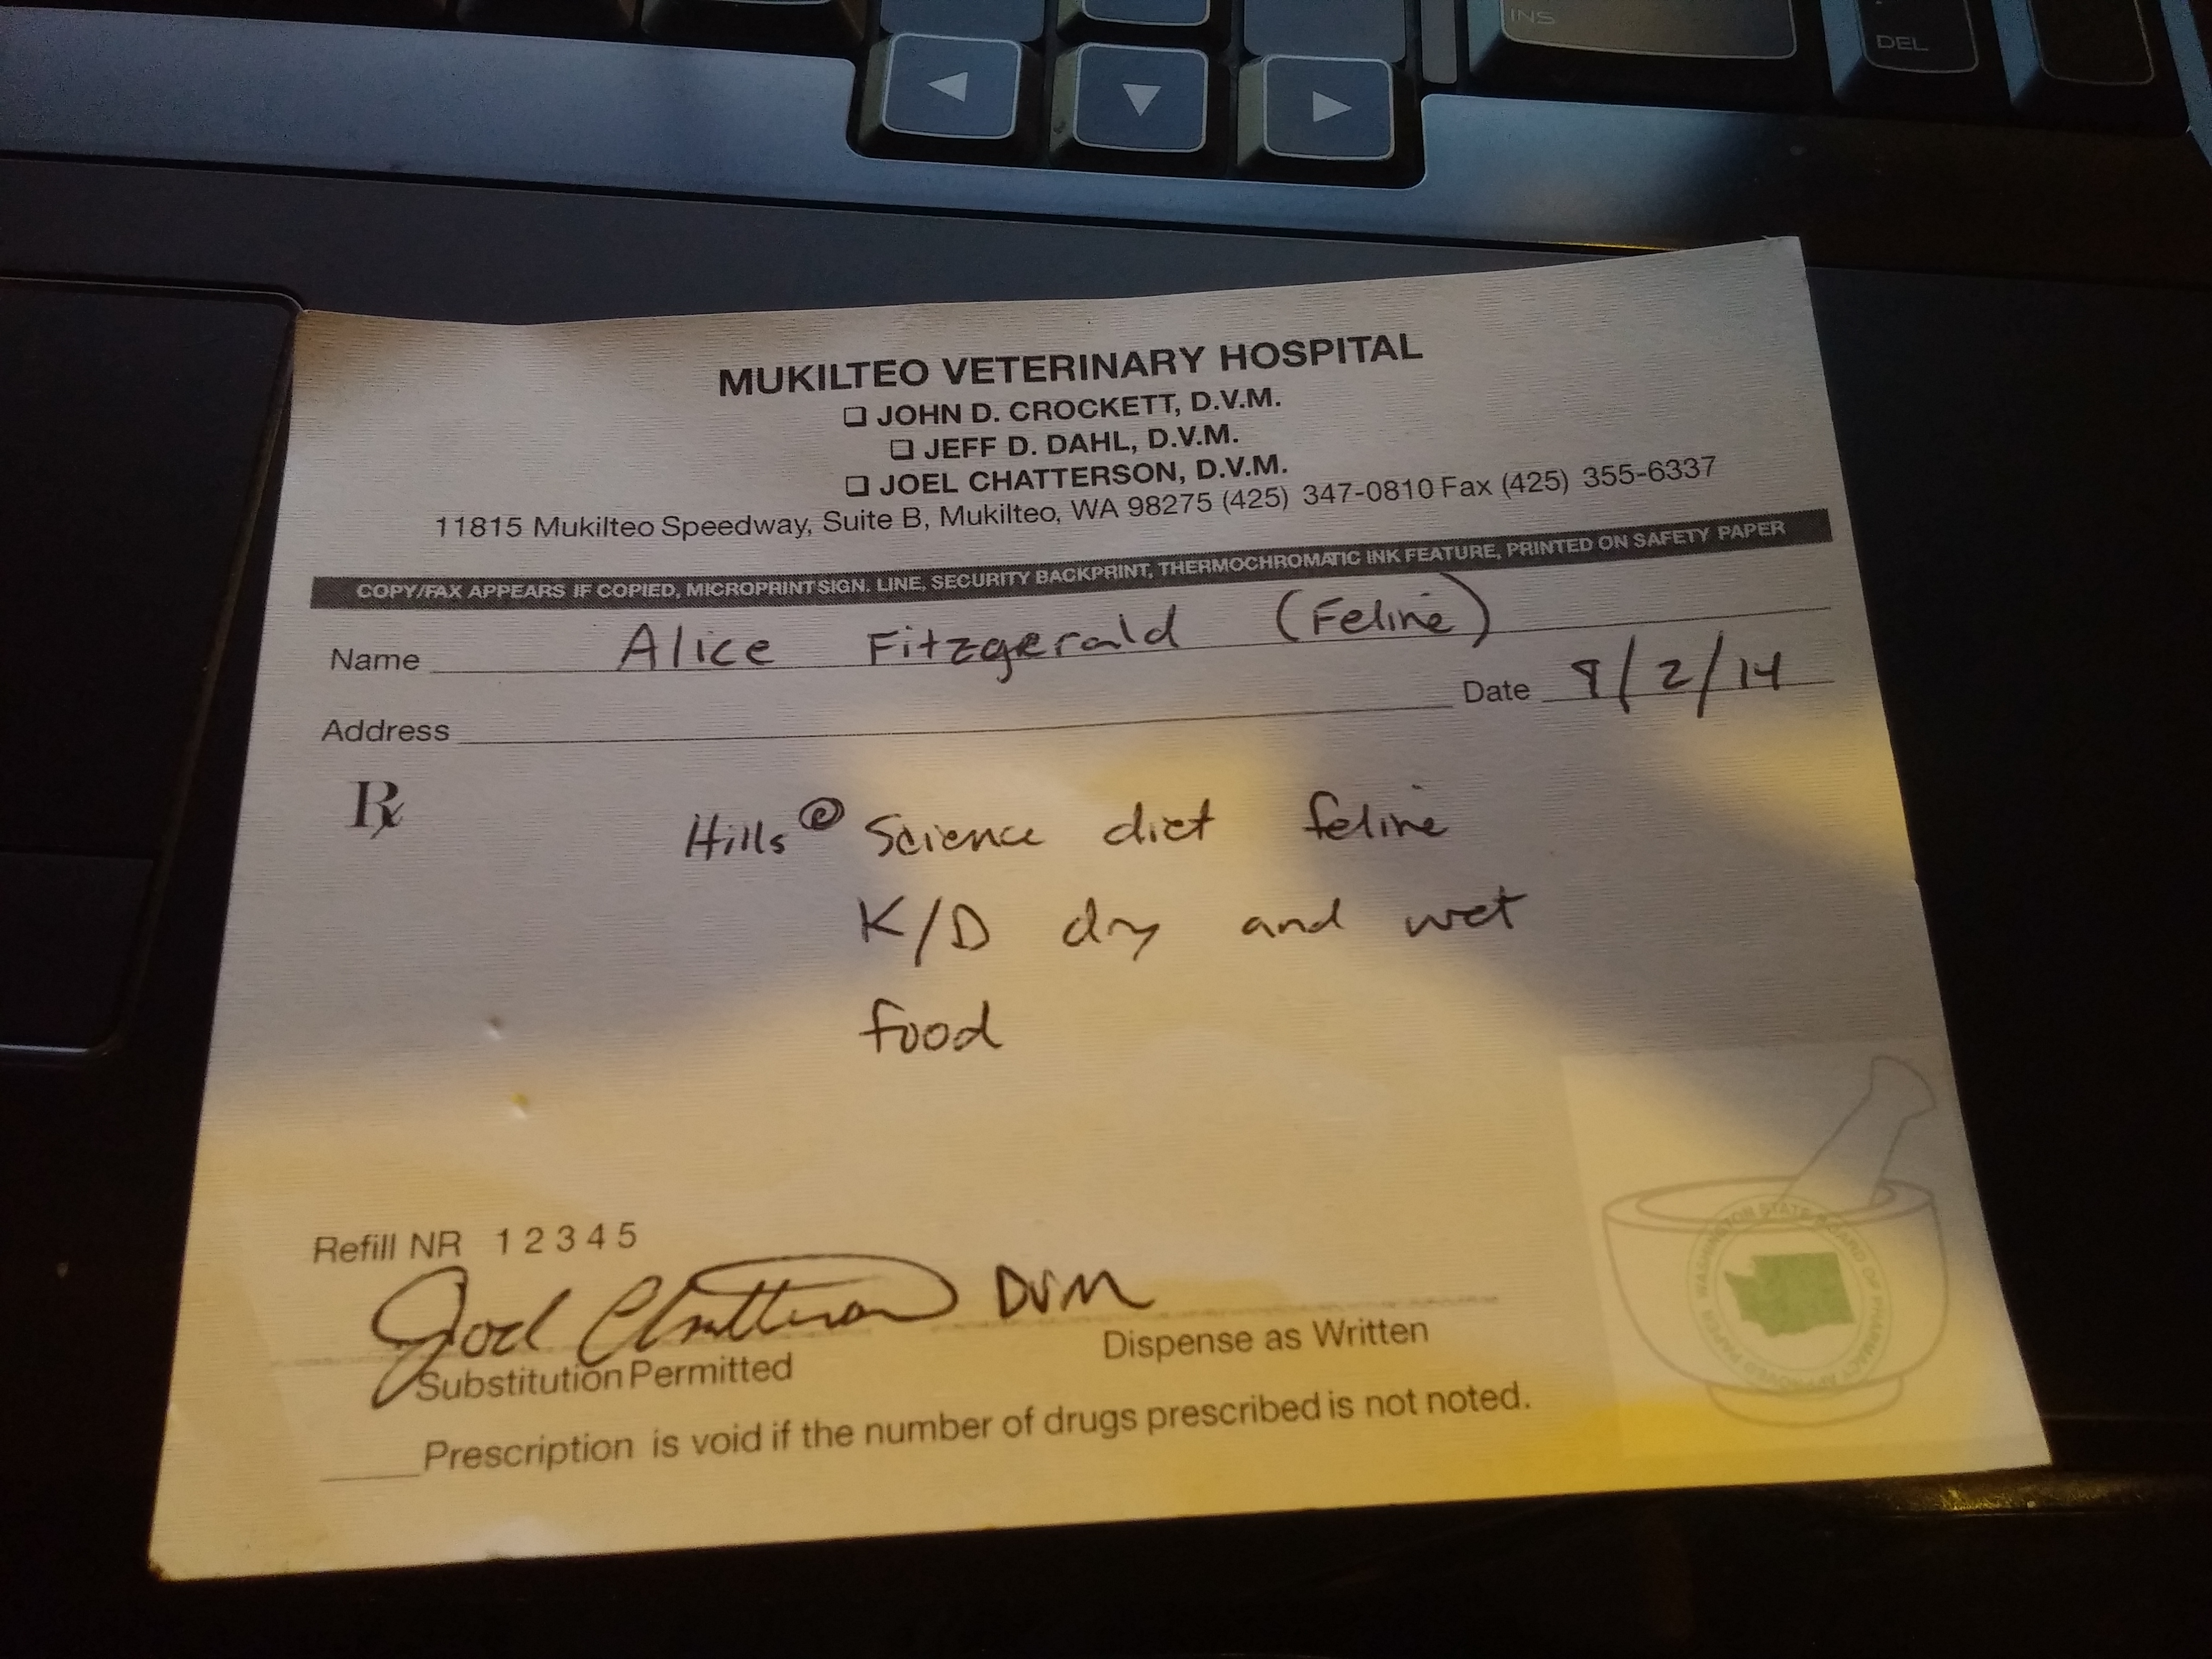 INS
DEL
MUKILTEO VETERINARY HOSPITAL
JOHN D. CROCKETT, D.V.M.
JEFF D. DAHL, D.V.M.
JOEL CHATTERSON, D.V.M.
11815 Mukilteo Speedway, Suite B, Mukilteo, WA 98275 (425) 347-0810 Fax (425) 355-6337
COPY/FAX APPEARS IF COPIED, MICROPRINT SIGN. LINE, SECURITY BACKPRINT, THERMOCHROMATIC INK FEATURE, PRINTED ON SAFETY PAPER
Name Alice Fitzgerald (Feline)
Address Date 8/2/14
Rx Hills® Science diet feline
K/D dry and wet
food
Refill NR 1 2 3 4 5
Joel Chatterson DVM
Substitution Permitted Dispense as Written
Prescription is void if the number of drugs prescribed is not noted.
WASHINGTON STATE BOARD OF PHARMACY APPROVED PAPER